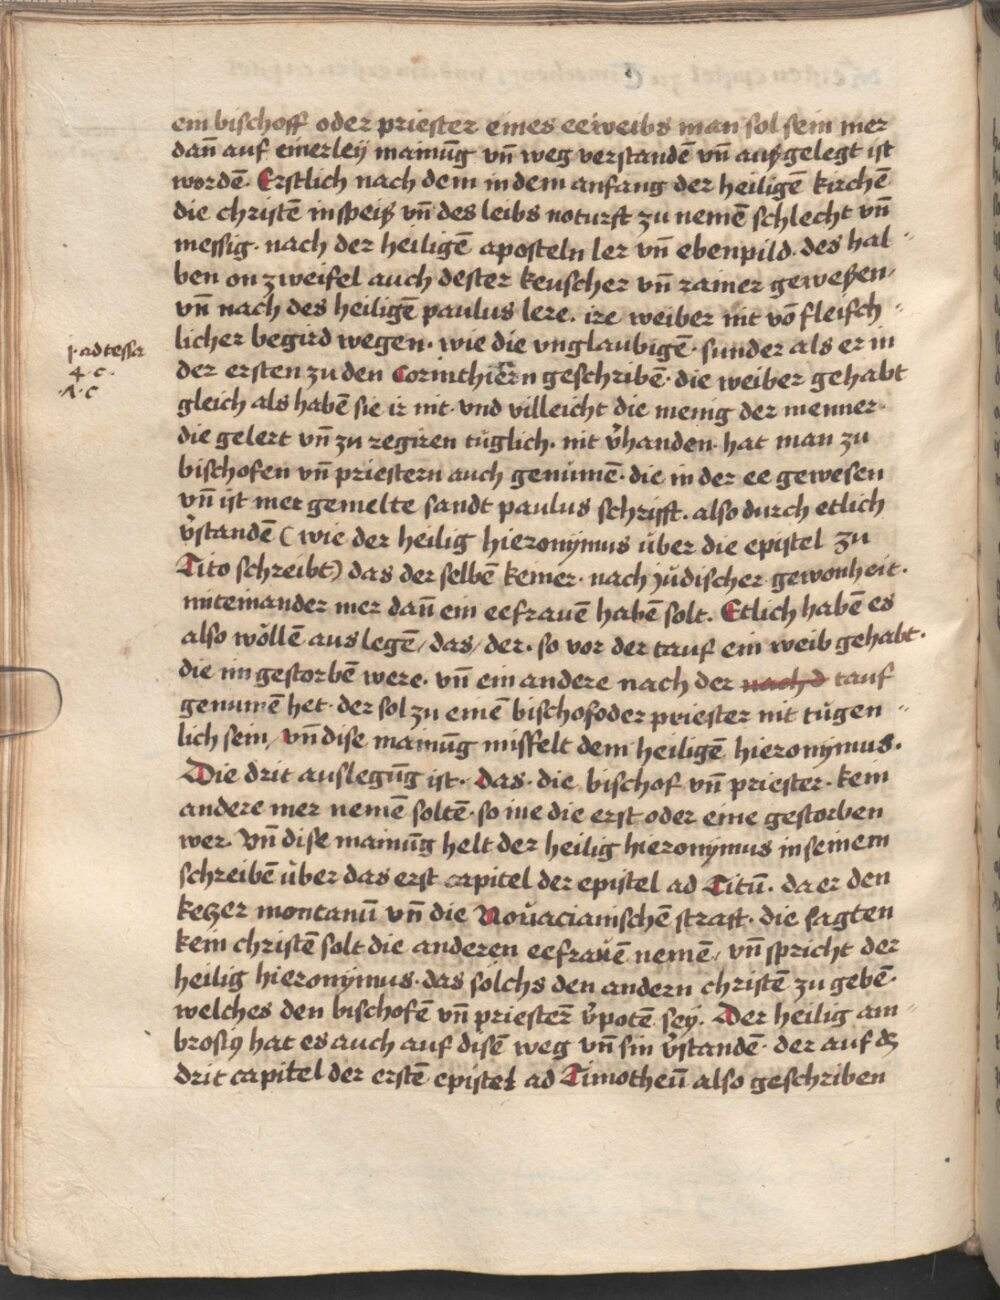 ein bischoff oder priester eines eeweibs man sol sein mer
dan̄ auf einerleÿ mainūg vn̄ weg verstandē vn̄ außgelegt ist
wordē. Erstlich nach dem in dem anfang der heiligē kirchē
die christē in speiß vn̄ des leibs noturft zu nemē schlecht vn̄
messig. nach der heiligē aposteln ler vn̄ ebenpild. des hal⸗
ben on zweifel auch dester keuscher vn̄ rainer geweßen.
vn̄ nach des heiligē paulus lere. ire weiber nit vō fleisch⸗
licher begird wegen. wie die vnglaubigē. sunder als er in
der ersten zu den Corinthiern geschribē. die weiber gehabt
gleich als habē sie ir nit. vnd villeicht die menig der menner.
die gelert vn̄ zu regiren tüglich. nit v̄handen. hat man zu
bischofen vn̄ priestern auch genūmē. die in der ee gewesen
vn̄ ist mer gemelte sandt paulus schrifft. also durch etlich
v̄standē (wie der heilig hieronÿmus über die epistel zu
Tito schreibt) das der selbē keiner. nach jüdischer gewonheit.
miteinander mer dan̄ ein eefrauē habē solt. Etlich habē es
also wöllē auslegē/ das/ der. so vor der tauf ein weib gehabt.
die im gestorbē were. vn̄ ein andere nach der nach d tauf
genumē het. der sol zu einē bischof oder priester nit tügen⸗
lich sein/ vn̄ dise mainūg misfelt dem heiligē hieronÿmus.
Die drit auslegūg ist. das. die bischof vn̄ priester. kein
andere mer nemē soltē. so ine die erst oder eine gestorben
wer. Vn̄ dise mainūg helt der heilig hieronÿmus in seinem
schreibē über das erst capitel der epistel ad Titū. da er den
ketzer montanū vn̄ die Novacianischē straft. die sagten
kein christē solt die anderen eefrauē nemē/ vn̄ spricht der
heilig hieronÿmus. das solchs den andern christē zu gebē.
welches den bischofē vn̄ priester̄ v̄potē seÿ. Der heilig am⸗
brosiꝰ hat es auch auf disē weg vn̄ sin v̄standē. der auf dz
drit capitel der erstē epistel ad Timotheū also geschriben
4. c.